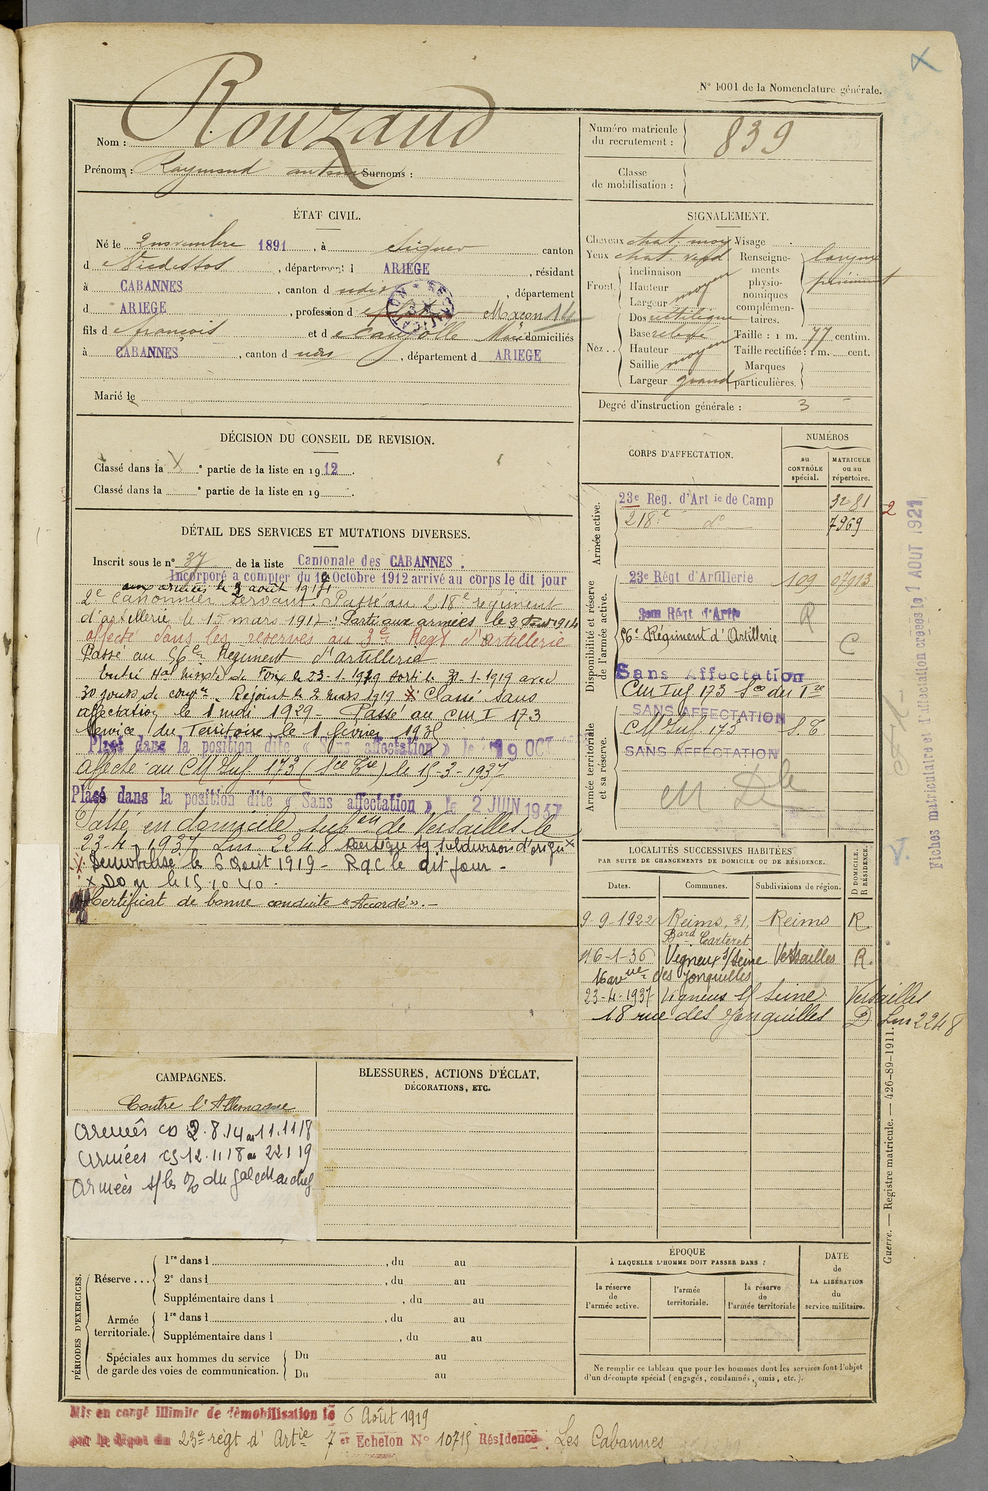 N° 1001 de la Nomenclature générale.
Nom : Rouzaud
Prénoms : Raymond Surnoms :
Numéro matricule du recrutement : 839
Classe de mobilisation :
ÉTAT CIVIL.
Né le 2 novembre 1891, à Siguer canton
d e Vicdessos, département d ARIEGE, résidant
à CABANNES, canton d udit, département
d ARIEGE, profession d Maçon
fils d e françois et d e domiciliés
à CABANNES, canton d udit, département d ARIEGE
Marié le
SIGNALEMENT.
Cheveux chat. moy Visage
Yeux chat. verd
Front. Inclinaison
Hauteur moyen
Largeur
Nez. Dos rectiligne
Base
Hauteur moyen
Saillie
Largeur grand
Renseignements physionomiques complémentaires.
Taille : 1 m. 77 centim.
Taille rectifiée : 1 m. cent.
Marques particulières.
Degré d'instruction générale : 3
DÉCISION DU CONSEIL DE REVISION.
Classé dans la partie de la liste en 1912.
Classé dans la partie de la liste en 19
CORPS D'AFFECTATION.
NUMÉROS
au CONTRÔLE spécial.
MATRICULE ou au répertoire.
Armée active.
23e Reg. d'Art ie de Camp 3281
218e do 7969
Disponibilité et réserve de l'armée active.
23e Régt d'Artillerie 109
Régt d'Artie R
56e Régiment d'Artillerie C
Sans Affectation
Armée territoriale et sa réserve.
SANS AFFECTATION
CM Inf 173 S.T.
SANS AFFECTATION
en Dle
DÉTAIL DES SERVICES ET MUTATIONS DIVERSES.
Inscrit sous le n° 37 de la liste Cantonale des CABANNES.
Incorporé a compter du 10 Octobre 1912 arrivé au corps le dit jour
aux armées le 3 août 1914
2e Canonnier Servant. Passé au 218e régiment
d'artillerie le 15 mars 1917. Parti aux armées le 3 août 1914
affecté dans les réserves au 3e Régt d'artillerie
Passé au 56e Régiment d'artillerie
Entré Hal mixte de Foix le 23-1-1919 sorti le 31-1-1919 avec
30 jours de conv. Rejoint le 2 mars 1919 X Classé sans
affectation le 1 mai 1929 Passé au CM I 173
Service du Territoire le 1 février 1935
Placé dans la position dite « Sans affectation » le 19 OCT
Affecté au CM Inf. 173 (Sce Tre) le 15-3-1937
Placé dans la position dite « Sans affectation » le 2 JUIN 1937
Passé en domicile subon de Versailles le
23-4-1937 Lm 2248 subdivision d'origne
X Démobilisé le 6 Août 1919 - Rac le dit jour -
Certificat de bonne conduite « Accordé ». -
LOCALITÉS SUCCESSIVES HABITÉES
PAR SUITE DE CHANGEMENTS DE DOMICILE OU DE RÉSIDENCE.
Dates. Communes. Subdivisions de région. D DOMICILE. R RÉSIDENCE.
9-9-1922 Reims, 31, Reims R.
Bard Carteret
16-1-36 Vigneux s/Seine Versailles R.
16 avue des Jonquilles
23-4-1937 Vigneux s/ Seine Versailles
18 rue des Jonquilles D Lm 2248
CAMPAGNES.
Contre l'Allemagne
Armées CD 2.8.14 au 11.11.18
Armées CS 12.11.18 au 22.1.19
BLESSURES, ACTIONS D'ÉCLAT,
DÉCORATIONS, ETC.
PÉRIODES D'EXERCICES.
Réserve... 1re dans l , du au
2e dans l , du au
Supplémentaire dans l , du au
Armée territoriale. 1re dans l , du au
Supplémentaire dans l , du au
Spéciales aux hommes du service de garde des voies de communication. Du au
Du au
ÉPOQUE
À LAQUELLE L'HOMME DOIT PASSER DANS :
la réserve de l'armée active.
l'armée territoriale.
la réserve de l'armée territoriale
DATE de LA LIBÉRATION du service militaire.
Ne remplir ce tableau que pour les hommes dont les services font l'objet
d'un décompte spécial (engagés, condamnés, omis, etc.).
Mis en congé illimité de démobilisation le 6 Août 1919
par le dépôt du 23e regt d'Artie 7e Echelon N° 10715 Résidence : Les Cabannes
Guerre. — Registre matricule. — 426-89-1911.
Fiches matriculaire et d'affectation créées le 1 AOUT 1921